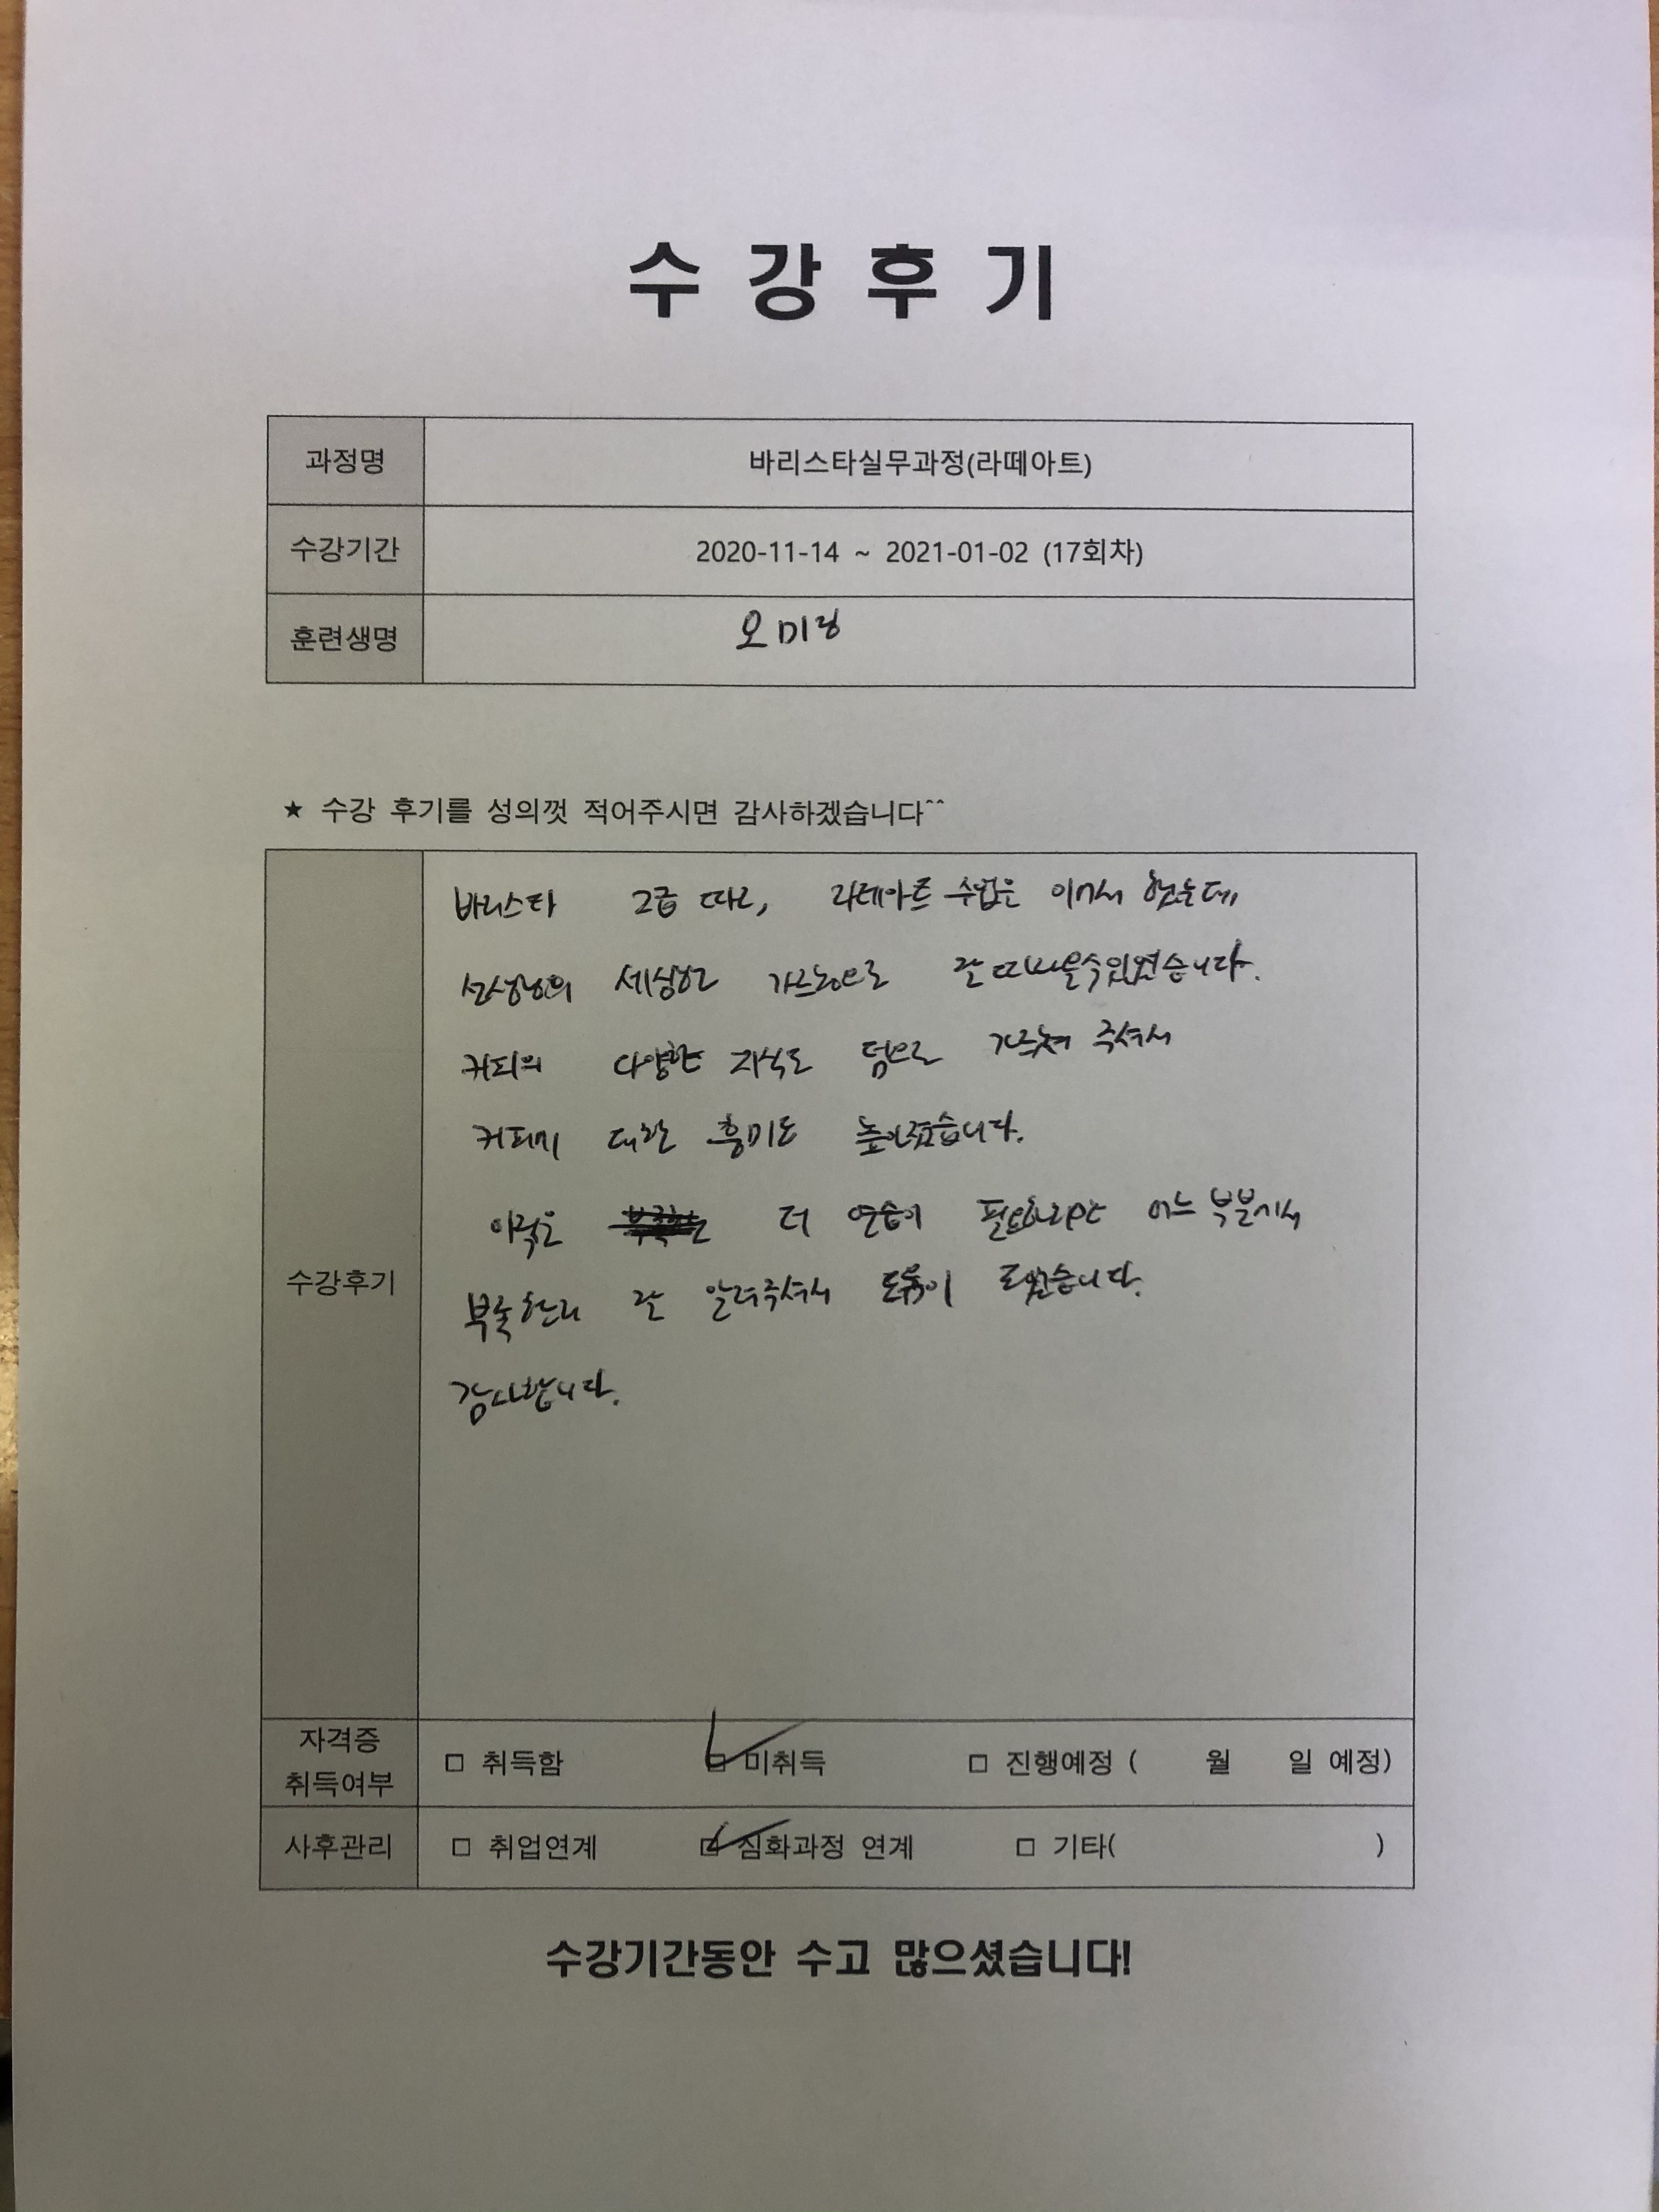 수강후기
과정명 바리스타실무과정(라떼아트)
수강기간 2020-11-14 ~ 2021-01-02 (17회차)
훈련생명 오미랑
★ 수강 후기를 성의껏 적어주시면 감사하겠습니다^^
수강후기
바리스타 2급 따고, 라떼아트 수업은 이어서 했는데,
선생님의 세심한 가르침으로 잘 따라올수있었습니다.
커피의 다양한 지식도 덤으로 가르쳐 주셔서
커피에 대한 흥미도 높아졌습니다.
아직은 더 연습이 필요하지만 어느 부분에서
부족한지 잘 알려주셔서 도움이 되었습니다.
감사합니다.
자격증
취득여부 □ 취득함 □ 미취득 □ 진행예정 ( 월 일 예정)
사후관리 □ 취업연계 □ 심화과정 연계 □ 기타( )
수강기간동안 수고 많으셨습니다!